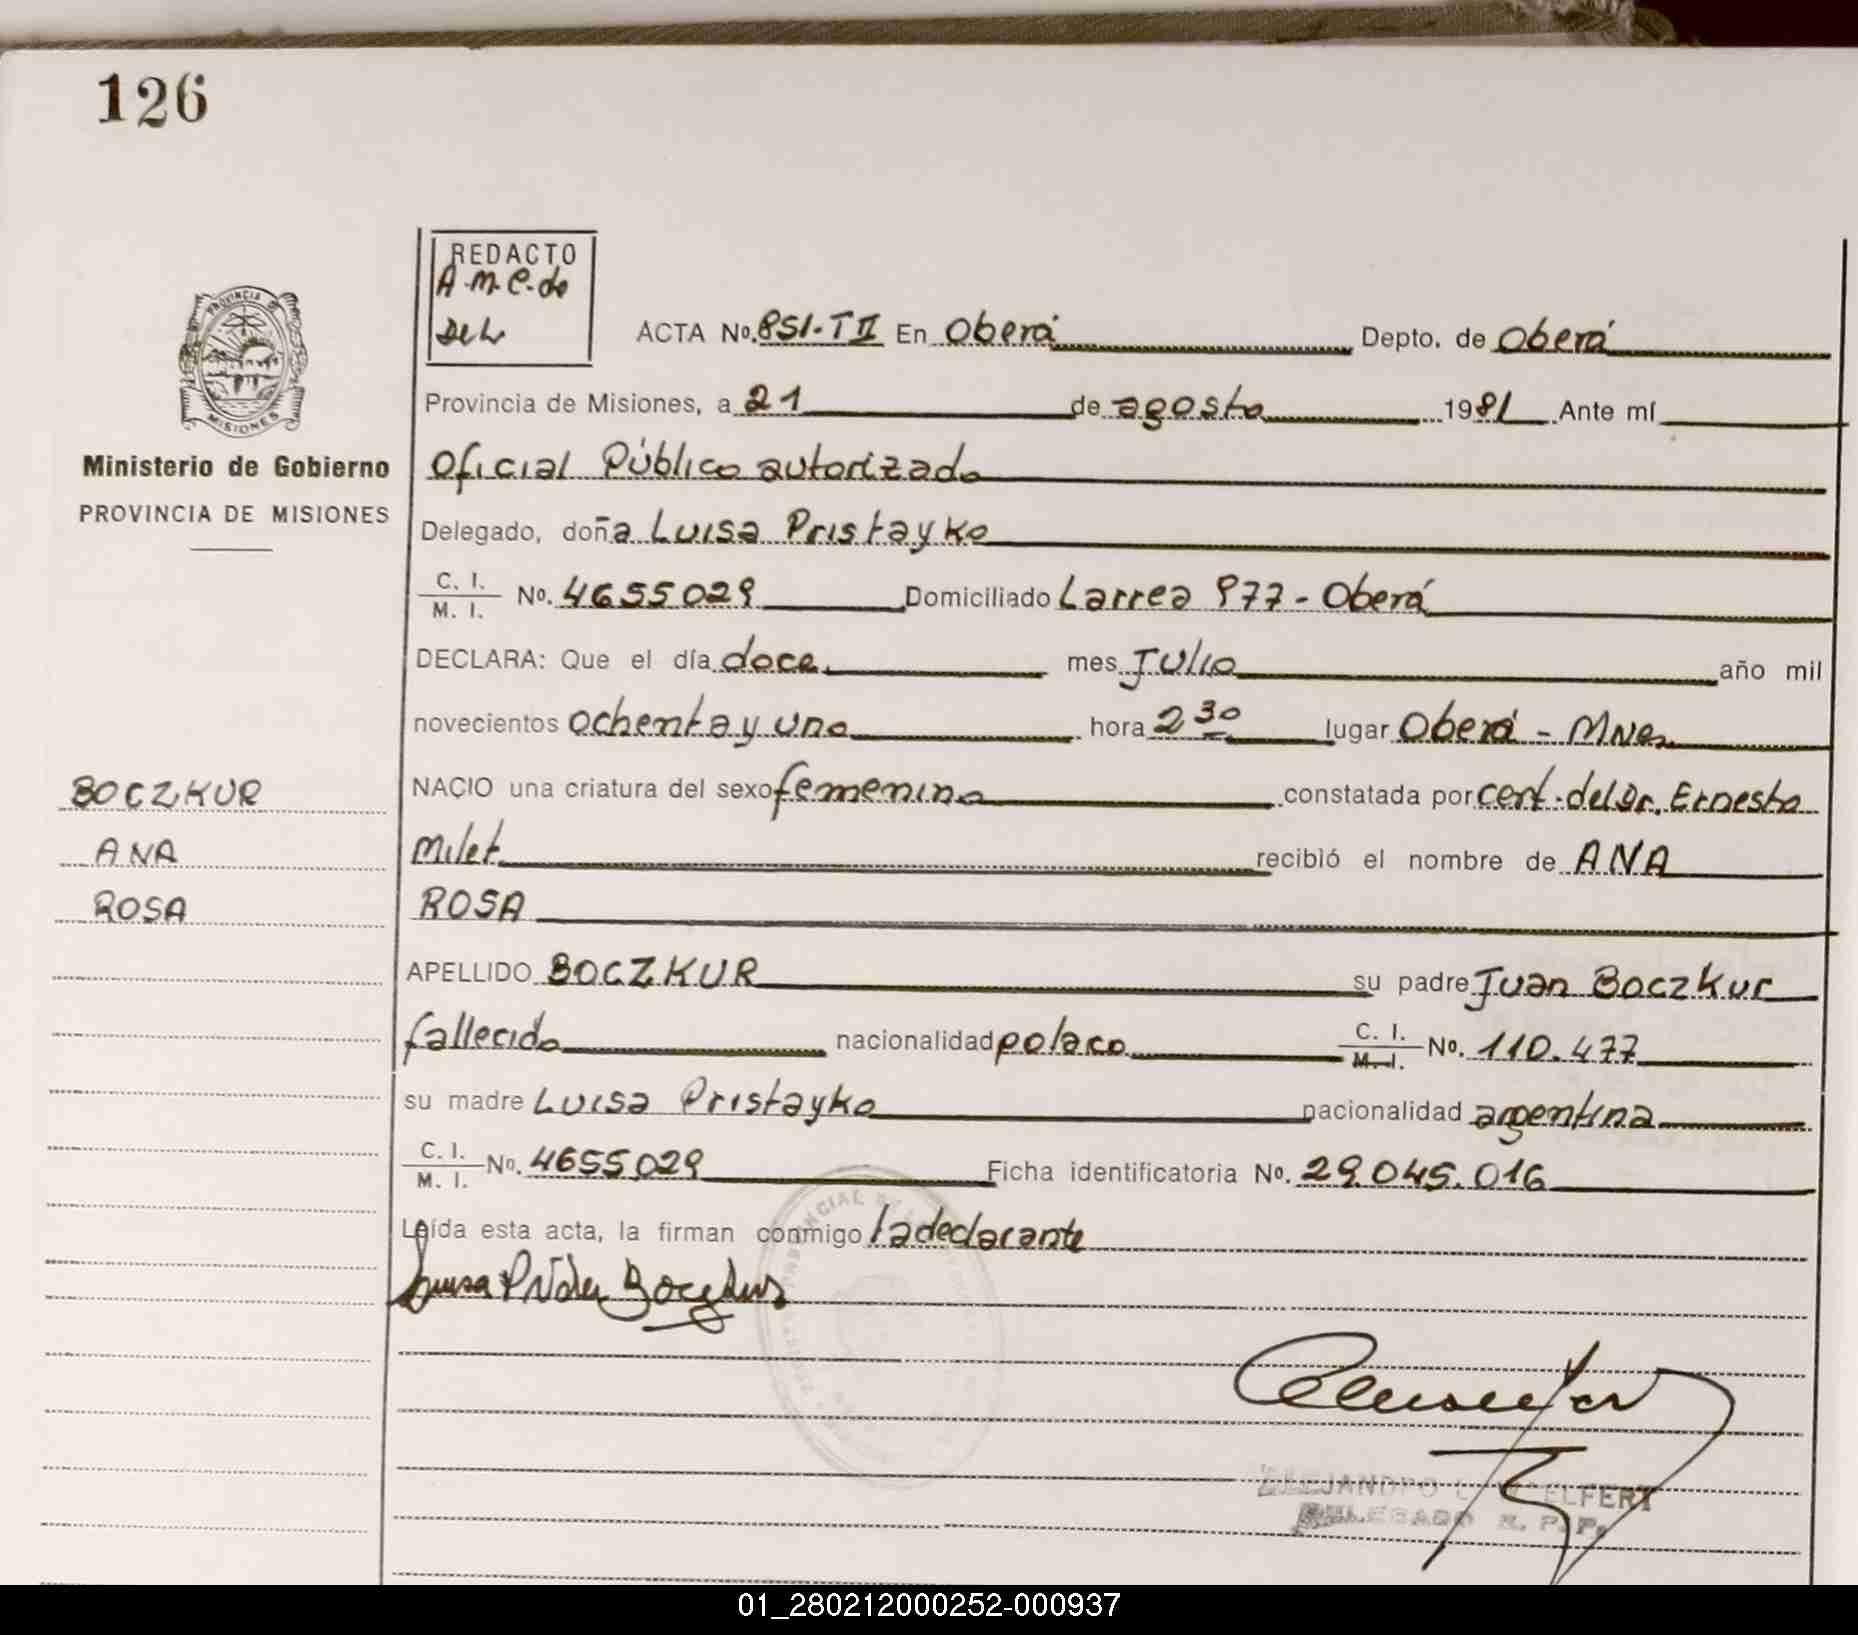 126
REDACTO
A.M.C. de
De L.
PROVINCIA DE
MISIONES
ACTA No. 851-T II En Oberá Depto. de Oberá
Provincia de Misiones, a 21 de agosto 1981 Ante mí
Ministerio de Gobierno
PROVINCIA DE MISIONES
Oficial Público autorizado
Delegado, doña Luisa Pristayko
C. I. / M. I. No. 4655029 Domiciliado Larrea 977 - Oberá
DECLARA: Que el día doce mes Julio año mil
novecientos ochenta y uno hora 2 30 lugar Oberá - Mnes.
BOCZKUR
NACIO una criatura del sexo femenino constatada por cert. del Dr. Ernesto
ANA
Milet recibió el nombre de ANA
ROSA
ROSA
APELLIDO BOCZKUR su padre Juan Boczkur
fallecido nacionalidad polaco C. I. / M. I. No. 110.477
su madre Luisa Pristayko nacionalidad argentina
C. I. / M. I. No. 4655029 Ficha identificatoria No. 29.045.016
Leída esta acta, la firman conmigo la declarante
ALEJANDRO ELFERT
DELEGADO R. P. P.
01_280212000252-000937